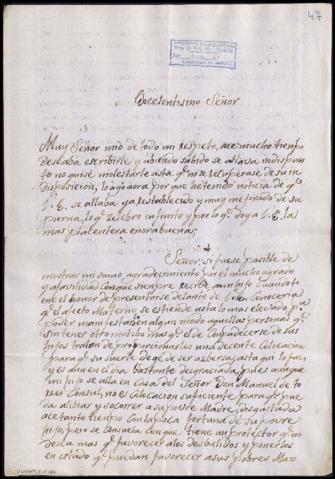 47
Excelentisimo Señor
Muy Señor mio de todo mi respeto, ace mucho tiempo
deseaba escribirle y abiendo sabido se allava indispues
to no quise molestarle asta qe. no se recuperase de su in
disposicion, lo ago aora por que teniendo noticia de qe.
V. E. se allaba ya restablecido y muy mejorado de su
pierna, lo qe. zelebro infinito y por lo qe. doy a V. E. la
mas plazentera enorabuena;
Señor, si fuese posible de
mostrar mi sumo agradecimiento por el mucho agrado
y afabilidad con que siempre recibe a mi hijo cuando ti
ene el honor de presentarse delante de V. E. conoceria
qe. el afecto Materno se estiende asta lo mas elevado pa
poder manifestar en algun modo aquellas personas qe.
sin tener otro motibo mas qe. el de compadecerse de sus
hijos tratan de proporcionarlos una decente colocacion
para qe. su suerte deje de ser adbersa, asta qui lo fue,
y es aun en el dia bastante desgraciada, pues aunque
mi hijo se alla en casa del Señor Don Manuel de to
rres Consul, no es colocacion suficiente para qe. pue
da alibiar y socorrer a su pobre Madre, disgustada
ace tanto tiempo con la poca fortuna de su pobre
hijo, pero se consuela con que tiene un protector qe. no
desea mas qe. favorecer a los desbalidos y ponerlos
en estado qe. puedan favorecer a sus pobres Ma=